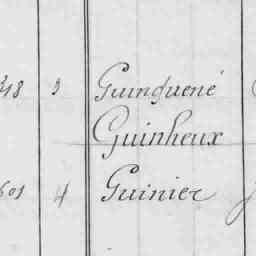 318 3 Guinguené
Guinheux
601 4 Guinier